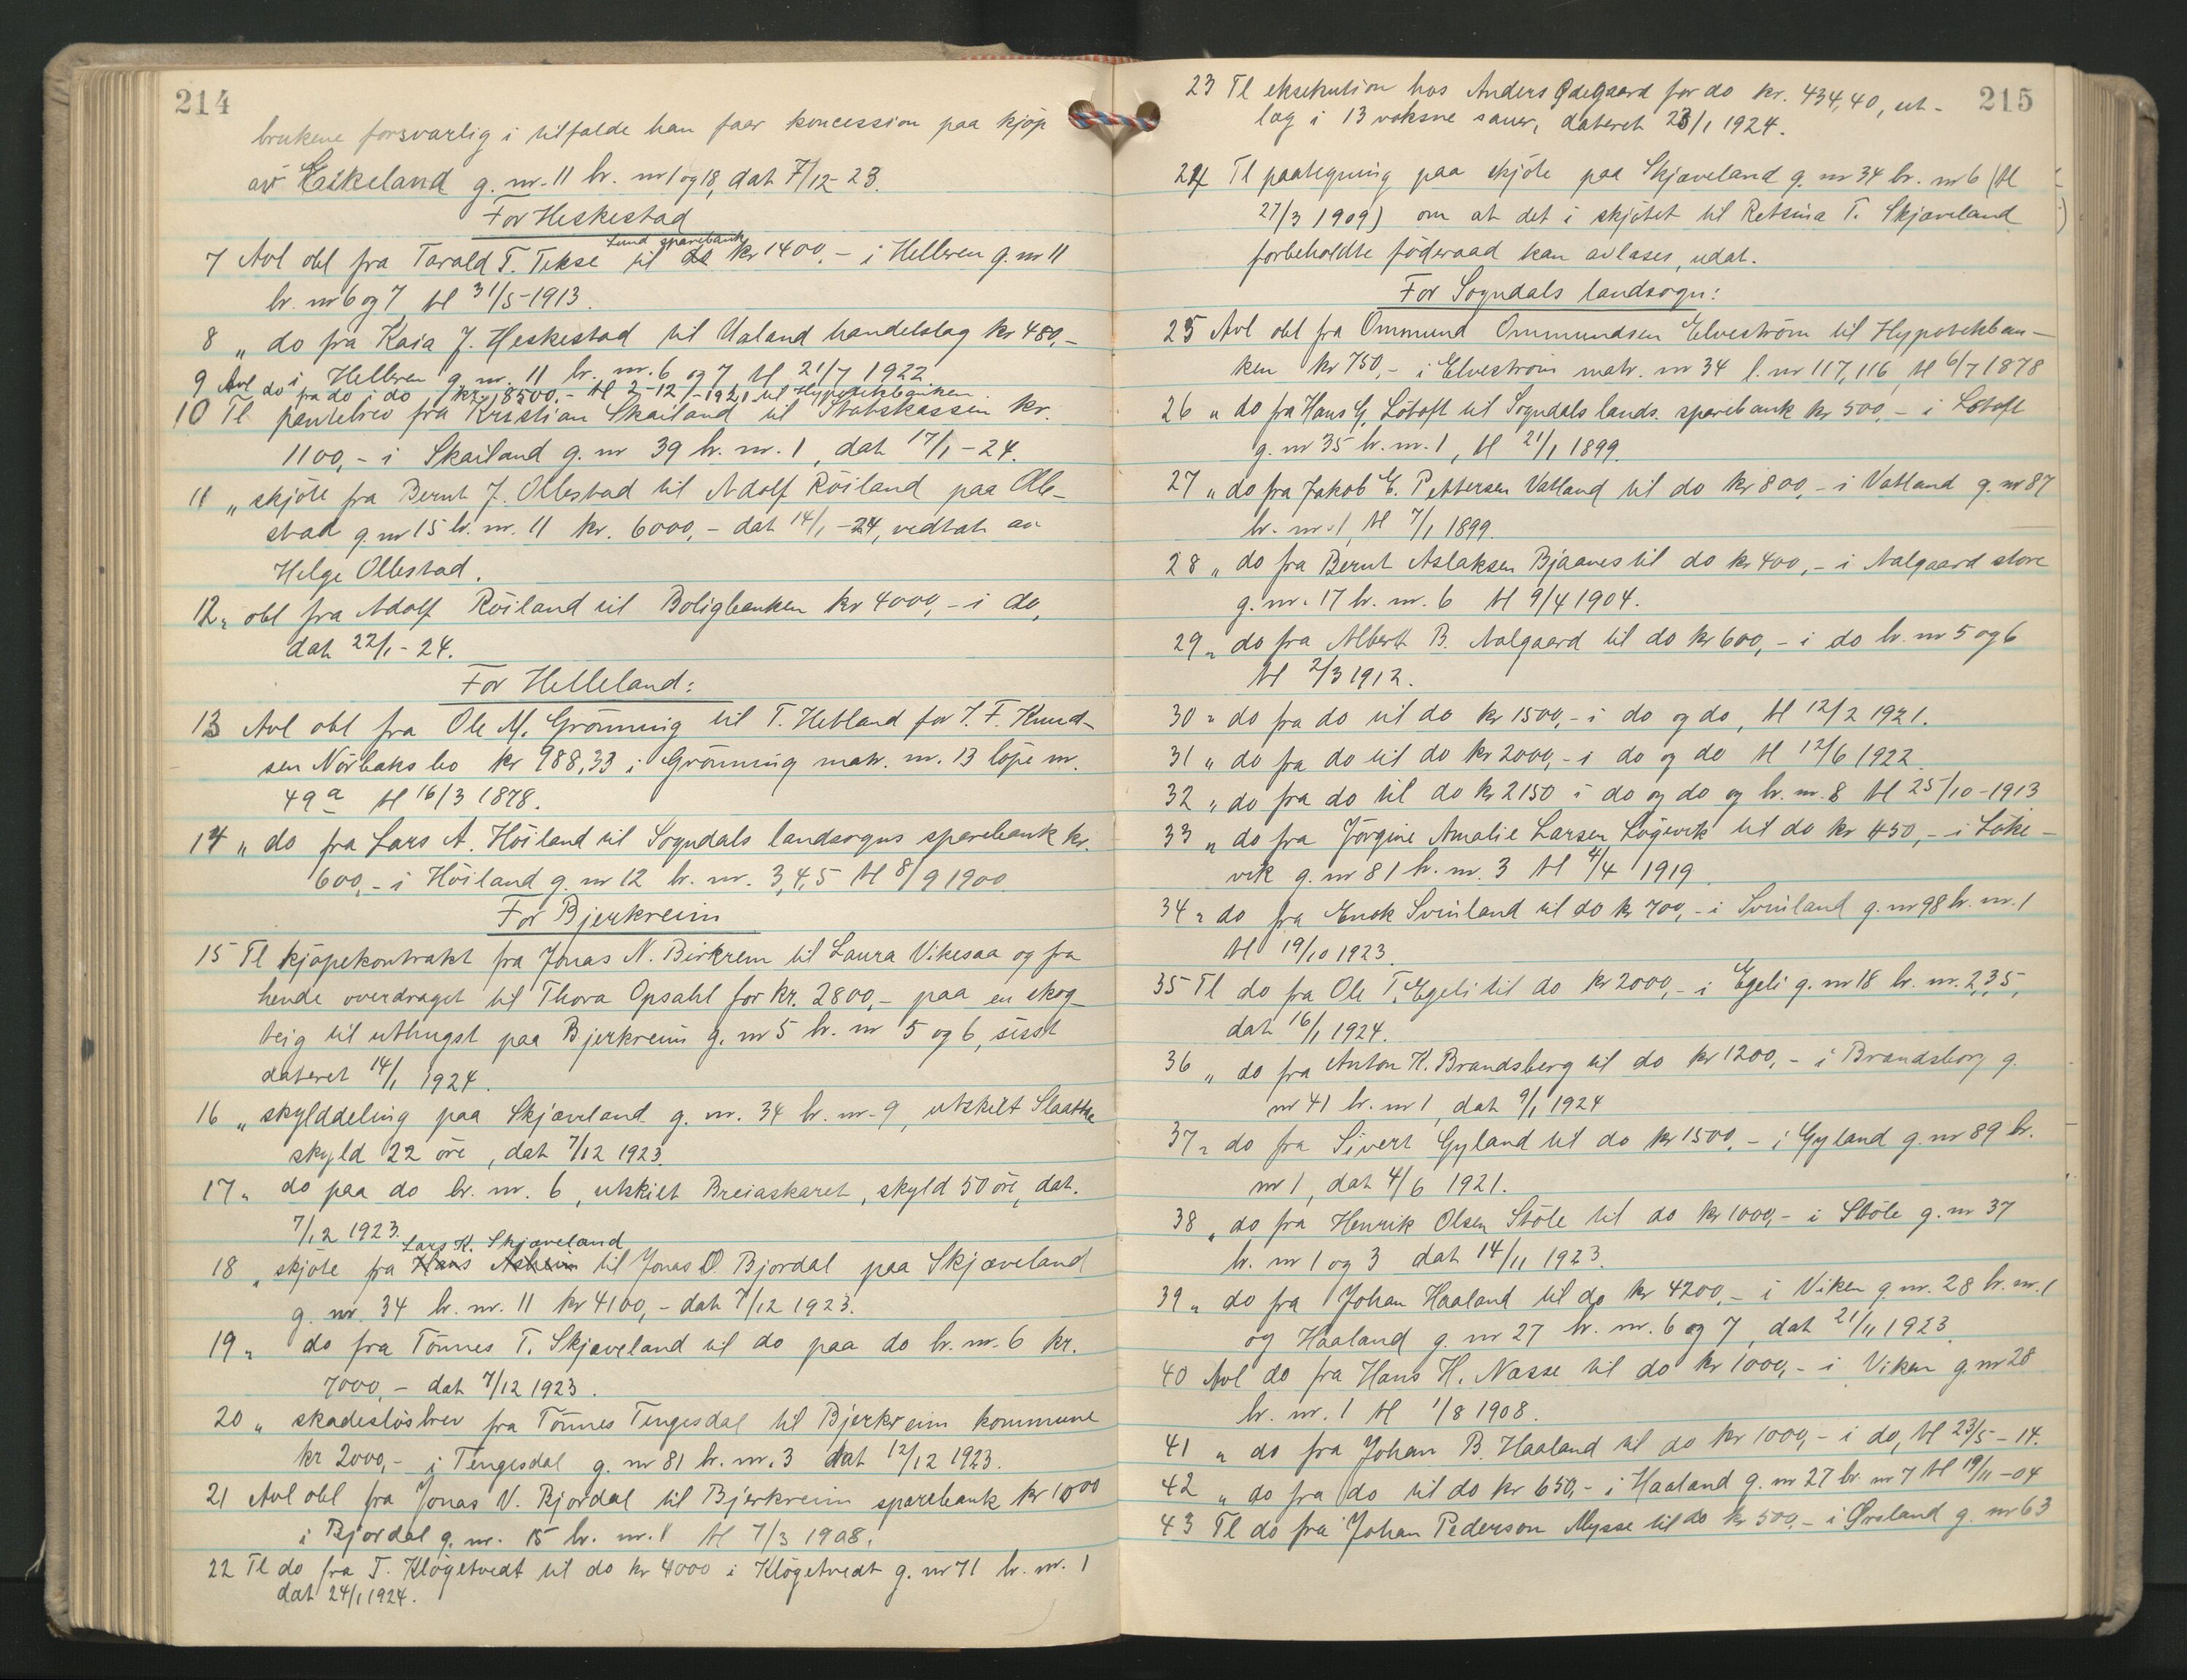 214
brukene forsvarlig i tilfælde han faar koncession paa kjøp
av Eikeland g. nr. 11 br. nr 1 og 18, dat 7/12-23.
For Heskestad
7 Avl obl fra Tarald T. Tekse til do Lund sparebank kr 1400,- i Helleren g. nr 11
br. nr 6 og 7 tl 31/5-1913.
8 " do fra Kaia J. Heskestad til Ualand handelslag kr 480,-
i Helleren g. nr. 11 br. nr. 6 og 7 tl 21/7 1922
9 Avl do fra do i do kr. 18500,- tl 2-12-1921 til Hypothekbanken
10 Tl. pantebrev fra Kristian Skailand til Statskassen kr.
1100,- i Skailand g. nr 39 br. nr. 1, dat 17/1-24.
11 " skjøte fra Bernt J. Ollestad til Adolf Röiland paa Olle-
stad g. nr 15 br. nr. 11 kr. 6000,- dat 14/1-24, vedtat av
Helge Ollestad.
12 " obl fra Adolf Röiland til Boligbanken kr 4000,- i do,
dat 22/1-24.
For Helleland:
13 Avl obl fra Ole M. Grönning til T. Hetland for J. F. Knud-
sen Nörbeks bo kr 988,33 i Grönning matr. nr. 13 löpe nr.
49a tl 16/3 1878.
14 " do fra Lars A. Höiland til Sogndals landsogns sparebank kr.
600,- i Höiland g. nr 12 br. nr. 3,4,5 tl 8/9 1900
For Bjerkreim
15 Tl kjöpekontrakt fra Jonas N. Birkrem til Laura Vikesaa og fra
hende overdraget til Thora Opsahl for kr. 2800,- paa en skog
teig til uthugst paa Bjerkreim g. nr 5 br. nr 5 og 6, sisst
dateret 14/1 1924.
16 " skylddeling paa Skjæveland g. nr. 34 br. nr. 9, utskilt Slaatthe
skyld 22 öre, dat 7/12 1923.
17 " do paa do br. nr. 6, utskilt Breiaskaret, skyld 50 öre, dat.
7/12 1923.
18 " skjöte fra Hans Asheim Lars K. Skjæveland til Jonas O. Bjordal paa Skjæveland
g. nr. 34 br. nr. 11 kr 4100,- dat 7/12 1923.
19 " do fra Tönnes T. Skjæveland til do paa do br. nr. 6 kr.
7000,- dat 7/12 1923.
20 " skadeslösbrev fra Tönnes Tengesdal til Bjerkreim kommune
kr 2000,- i Tengesdal g. nr 81 br. nr. 3 dat 12/12 1923.
21 Avl obl fra Jonas V. Bjordal til Bjerkreim sparebank kr 1000
i Bjordal g. nr. 15 br. nr. 1 tl 7/3 1908.
22 Tl do fra T. Klögetvedt til do kr 4000 i Klögetvedt g. nr 71 br. nr. 1
dat 24/1 1924.
215
23 Tl eksekution hos Anders Ødegaard for do kr. 434,40, ut-
læg i 13 voksne sauer, dateret 23/1 1924.
24 Tl paategning paa skjöte paa Skjæveland g. nr 34 br. nr 6 (tl
27/3 1909) om at det i skjötet til Retsina T. Skjæveland
forbeholdte föderaad kan avlæses, udat.
For Sogndals landsogn:
25 Avl obl fra Ommund Ommundsen Elveström til Hypotekban-
ken kr 750,- i Elveström matr. nr 34 l. nr 117, 116 tl 6/7 1878
26 " do fra Hans G. Lötoft til Sogndals lands. sparebank kr 500,- i Lötoft
g. nr 35 br. nr. 1, tl 21/1 1899.
27 " do fra Jakob E. Pettersen Vatland til do kr 800,- i Vatland g. nr 87
br. nr. 1, tl 7/1 1899.
28 " do fra Bernt Aslaksen Bjaanes til do kr 400,- i Aalgaard store
g. nr. 17 br. nr. 6 tl 9/4 1904.
29 " do fra Albert B. Aalgaard til do kr 600,- i do br. nr 5 og 6
tl 2/3 1912.
30 " do fra do til do kr 1500,- i do og do, tl 12/2 1921.
31 " do fra do til do kr 2000,- i do og do tl 12/6 1922
32 " do fra do til do kr 2150 i do og do og br. nr. 8 tl 25/10-1913
33 " do fra Jörgine Amalie Larsen Lögevik til do kr 450,- i Löke-
vik g. nr 81 br. nr. 3 tl 4/4 1919.
34 " do fra Enok Svinland til do kr 700,- i Svinland g. nr 98 br. nr. 1
tl 19/10 1923.
35 Tl do fra Ole T. Egeli til do kr 2000,- i Egeli g. nr 18 br. nr. 2,3,5,
dat 16/1 1924.
36 " do fra Anton K. Brandsberg til do kr 1200,- i Brandsberg g.
nr 41 br. nr 1, dat 9/1 1924
37 " do fra Sivert Gyland til do kr 1500,- i Gyland g. nr 89 br.
nr 1, dat 4/6 1921.
38 " do fra Henrik Olsen Stöle til do kr 1000,- i Stöle g. nr 37
br. nr 1 og 3 dat 14/11 1923.
39 " do fra Johan Haaland til do kr 4200,- i Viken g. nr. 28 br. nr. 1
og Haaland g. nr 27 br. nr. 6 og 7, dat 21/11 1923.
40 Avl do fra Hans H. Nasse til do kr 1000,- i Viken g. nr 28
br. nr. 1 tl 1/8 1908.
41 " do fra Johan B. Haaland til do kr 1000,- i do, tl 23/5-14.
42 " do fra do til do kr 650,- i Haaland g. nr 27 br. nr 7 tl 19/11-04
43 Tl do fra Johan Pederson Mysse til do kr 500,- i Ørsland g. nr 63